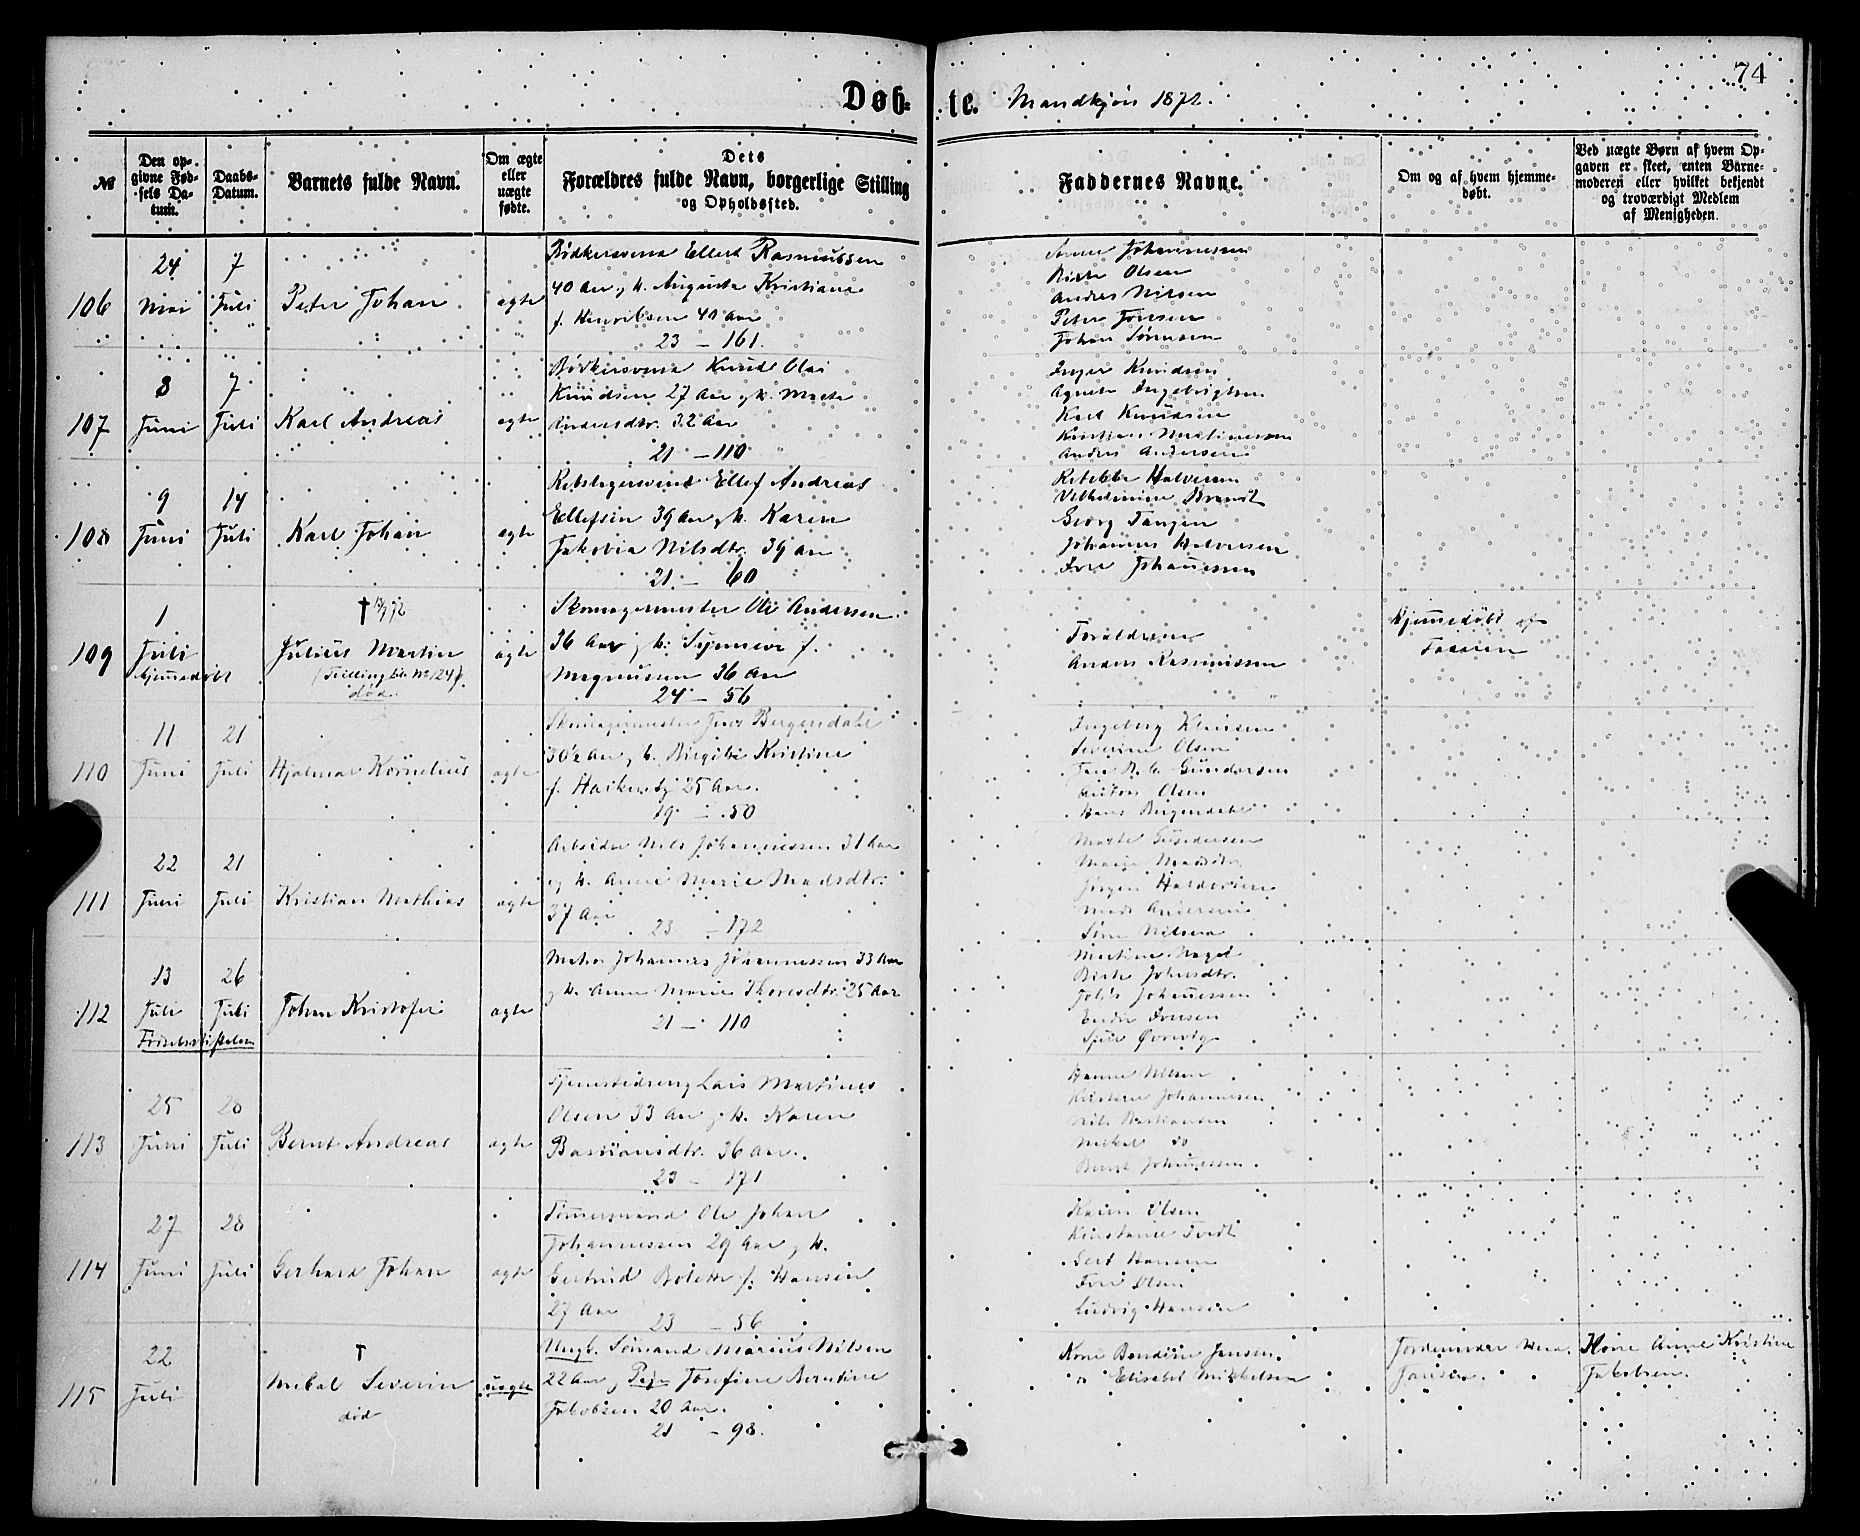 74
Døb- te. Mandkjøn 1872.
№
Den op-
givne Fød-
sels Da-
tum.
Daabs-
Datum.
Barnets fulde Navn.
Om ægte
eller
uægte
fødte.
Dets
Forældres fulde Navn, borgerlige Stilling
og Opholdssted.
Faddernes Navne.
Om og af hvem hjemme-
døbt.
Ved uægte Børn af hvem Op-
gaven er skeet, enten Barne-
moderen eller hvilket bekjendt
og troværdigt Medlem
af Menigheden.
106
24
Mai
7
Juli
Peter Johan
ægte
Bødkersvend Ellert Rasmussen
40 Aar, h. Augusta Kristiana
f. Henriksen 40 Aar
23 – 161.
Anne Johannessen
Birte Olsen
Anders Nilsen
Peter Jensen
Johan Sørensen
107
8
Juni
7
Juli
Karl Andreas
ægte
Bødkersvend Knud Olai
Knudsen 27 Aar og h. Marte
Andersdtr. 32 Aar
21 – 110
Inger Knudsen
Karl Knudsen
Kristian Martinessen
Anders Andersen
108
9
Juni
14
Juli
Karl Johan
ægte
Rebslagersvend Ellef Andreas
Ellefsen 39 Aar, h. Karen
Jakobia Nilsdtr. 39 Aar
21 – 60
Rebekka Halvorsen
Vilhelmine Brandt
Georg Tangen
Johannes Halvorsen
Iver Johannessen
109
1
Juli
hjemmedøbt
† 13/7 72
Julius Martin
(Tvilling til No 124)
død.
ægte
Skomagermester Ole Andersen
36 Aar, h. f.
Magnussen 36 Aar
24 – 56
Forældrene
Anders Rasmussen
Hjemmedøbt af
Faderen
110
11
Juni
21
Juli
Hjalmar Kornelius
ægte
Skomagermester Jens Bergendahl
30½ Aar, h. Birgitte Kristine
25 Aar.
19 – 50
Ingeborg Knudsen
Severine Olsen
Gundersen
Olsen
Hans Bergendahl
111
22
Juni
21
Juli
Kristian Mathias
ægte
Arbeider Nils Johannessen 31 Aar
og h. Anne Marie Madsdtr.
37 Aar
23 – 172
Marte Gundersen
Jørgen Halvorsen
Mads Andersen
Nilsen
112
13
Juli
26
Juli
Fødselsstiftelsen
Johan Kristofer
ægte
Johannes Johannessen 33 Aar
h. Anne Marie Thoresdtr. 25 Aar
21 – 110
Martine Nagel
Birte Johnsdtr.
Johannessen
Iversen
113
25
Juni
28
Juli
Bernt Andreas
ægte
Tjenestedreng Lars Martinus
Olsen 33 Aar, h. Karen
Bastiansdtr. 36 Aar.
23 – 171
Hanne Nilsen
Johannesen
Nils Bastiansen
Mikal do
Bernt Johannessen
114
27
Juni
28
Juli
Gerhard Johan
ægte
Tømmermand Ole Johan
Johannessen 29 Aar, h.
Gertrud Bolette f. Hansen
27 Aar
23 – 56
Karen Olsen
Konstance Tvedt
Gert Hansen
Olsen
Ludvig Hansen
115
22
Juli
†
Mikal Severin
død
uægte
Ungk. Sømand Marius Nilsen
22 Aar, Pige Josefine Berntine
Jakobsen 20 Aar.
21 – 98.
Kone Jansen.
" Elisabet Mikkelsen
Jordemoder
Jansen.
Kone Anne Kristine
Jakobsen.